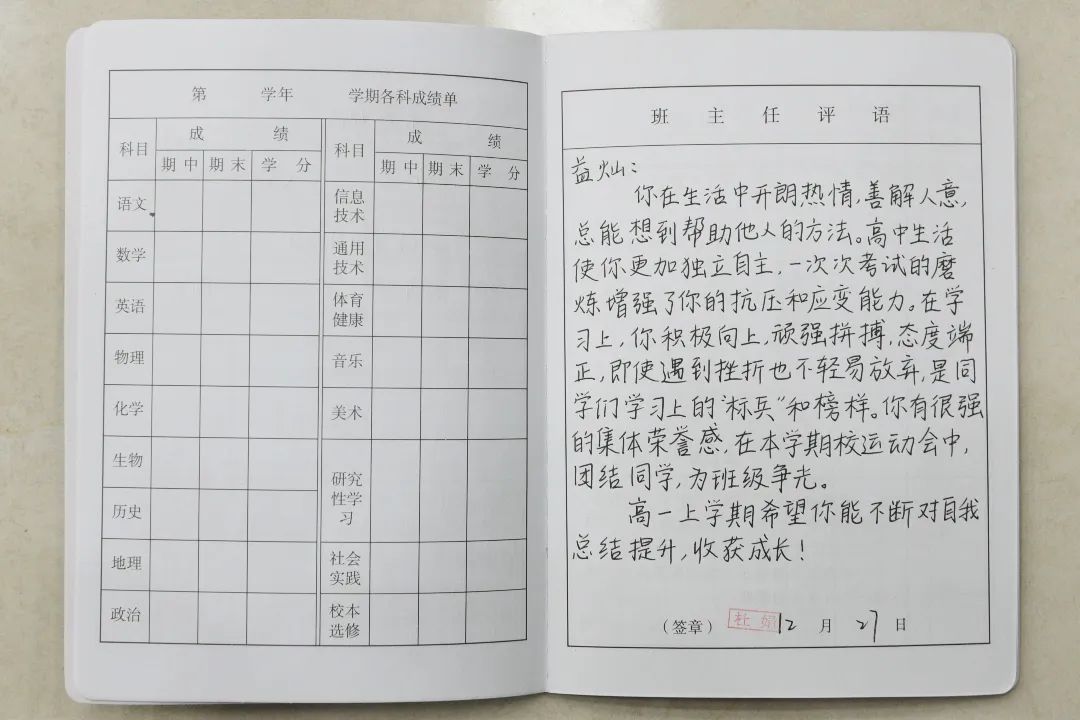 第 学年 学期各科成绩单
科目 成 绩 科目 成 绩
期中 期末 学 分 期中 期末 学 分
语文 信息技术
数学 通用技术
英语 体育健康
物理 音乐
化学 美术
生物 研究性学习
历史
地理 社会实践
政治 校本选修
班 主 任 评 语
益灿：
你在生活中开朗热情,善解人意,
总能想到帮助他人的方法。高中生活
使你更加独立自主,一次次考试的磨
炼增强了你的抗压和应变能力。在学
习上,你积极向上,顽强拼搏,态度端
正,即使遇到挫折也不轻易放弃,是同
学们学习上的“标兵”和榜样。你有很强
的集体荣誉感,在本学期校运动会中,
团结同学,为班级争光。
高一上学期希望你能不断对自我
总结提升,收获成长!
（签章）杜娟 12 月 27 日